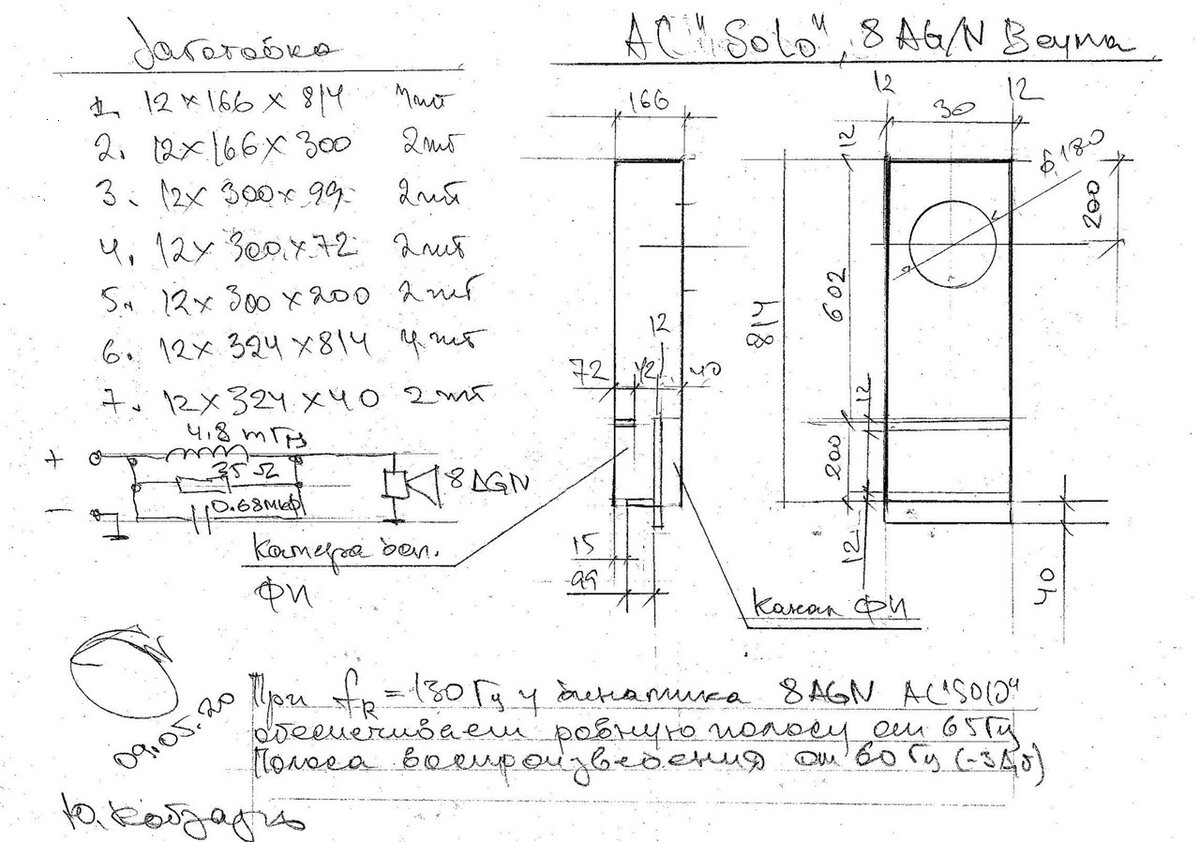 Заготовка
АС "Solo", 8 AG/N Веупа
1. 12×166×814 4шт
2. 12×166×300 2шт
3. 12×300×99 2шт
4. 12×300×72 2шт
5. 12×300×200 2шт
6. 12×324×814 4шт
7. 12×324×40 2шт
166
12 12
30
12
180
200
602
814
12
72 42 40
12
200
12
40
15
99
4.8 mГн
+
35 Ω
8AGN
0.68мкф
-
Камера доп.
ФИ
Канал ФИ
09.05.20
При fR = 130 Гц у динамика 8AGN АС "SOLO"
обеспечиваем ровную полосу от 65 Гц
Полоса воспроизведения от 60 Гц (-3дб)